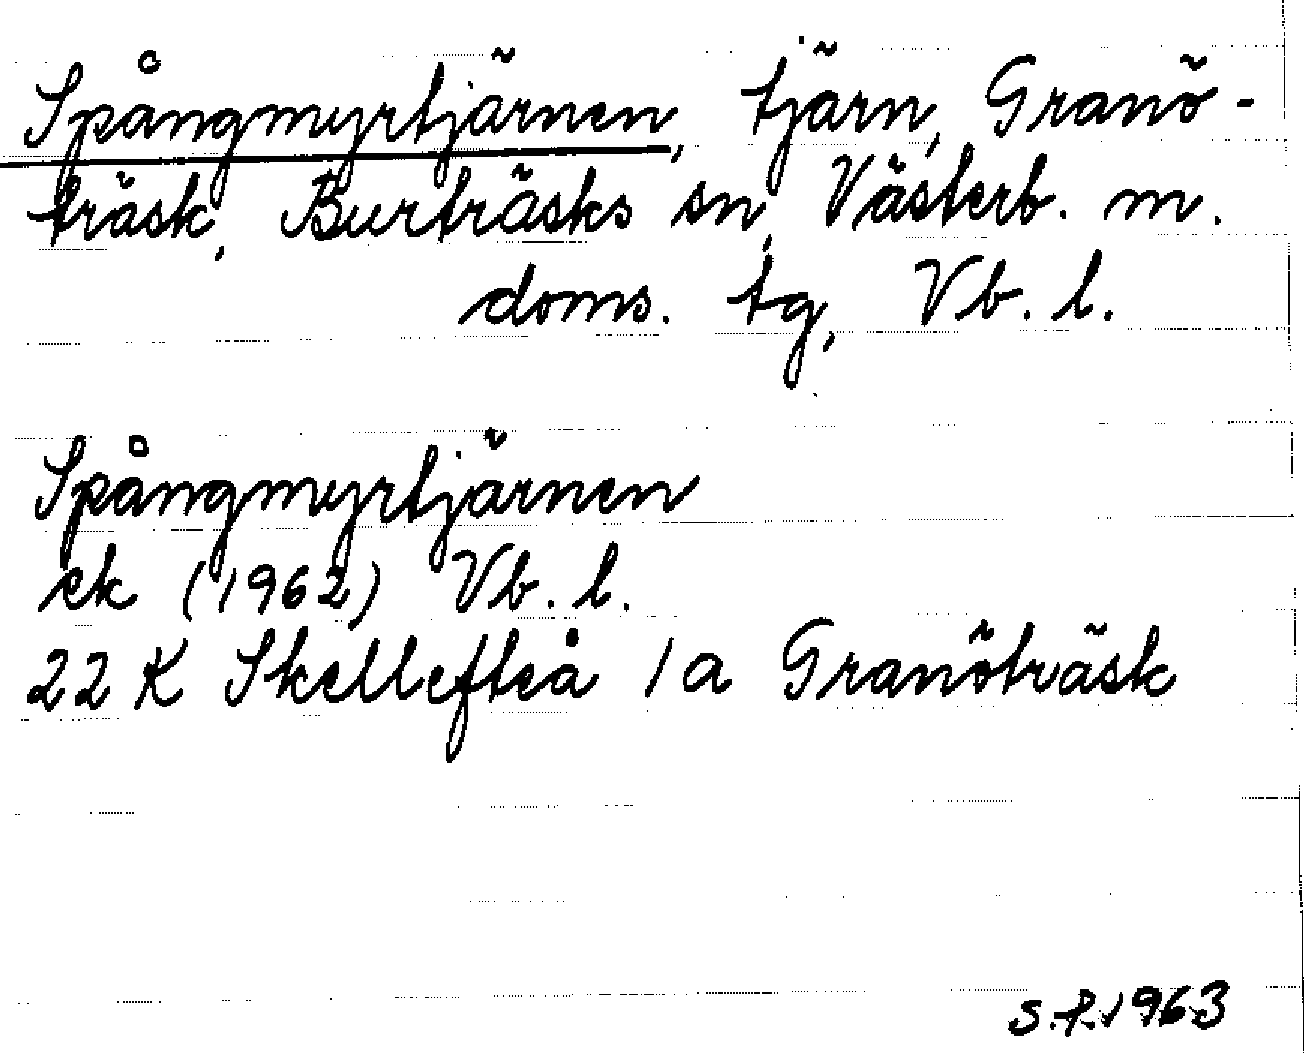 Spångmyrtjärnen, tjärn, Granö-
träsk, Burträsks sn, Västerb. m.
doms. tg, Vb. l.
Spångmyrtjärnen
ek (1962) Vb. l.
22 K Skellefteå 1a Granöträsk
S.P. 1963